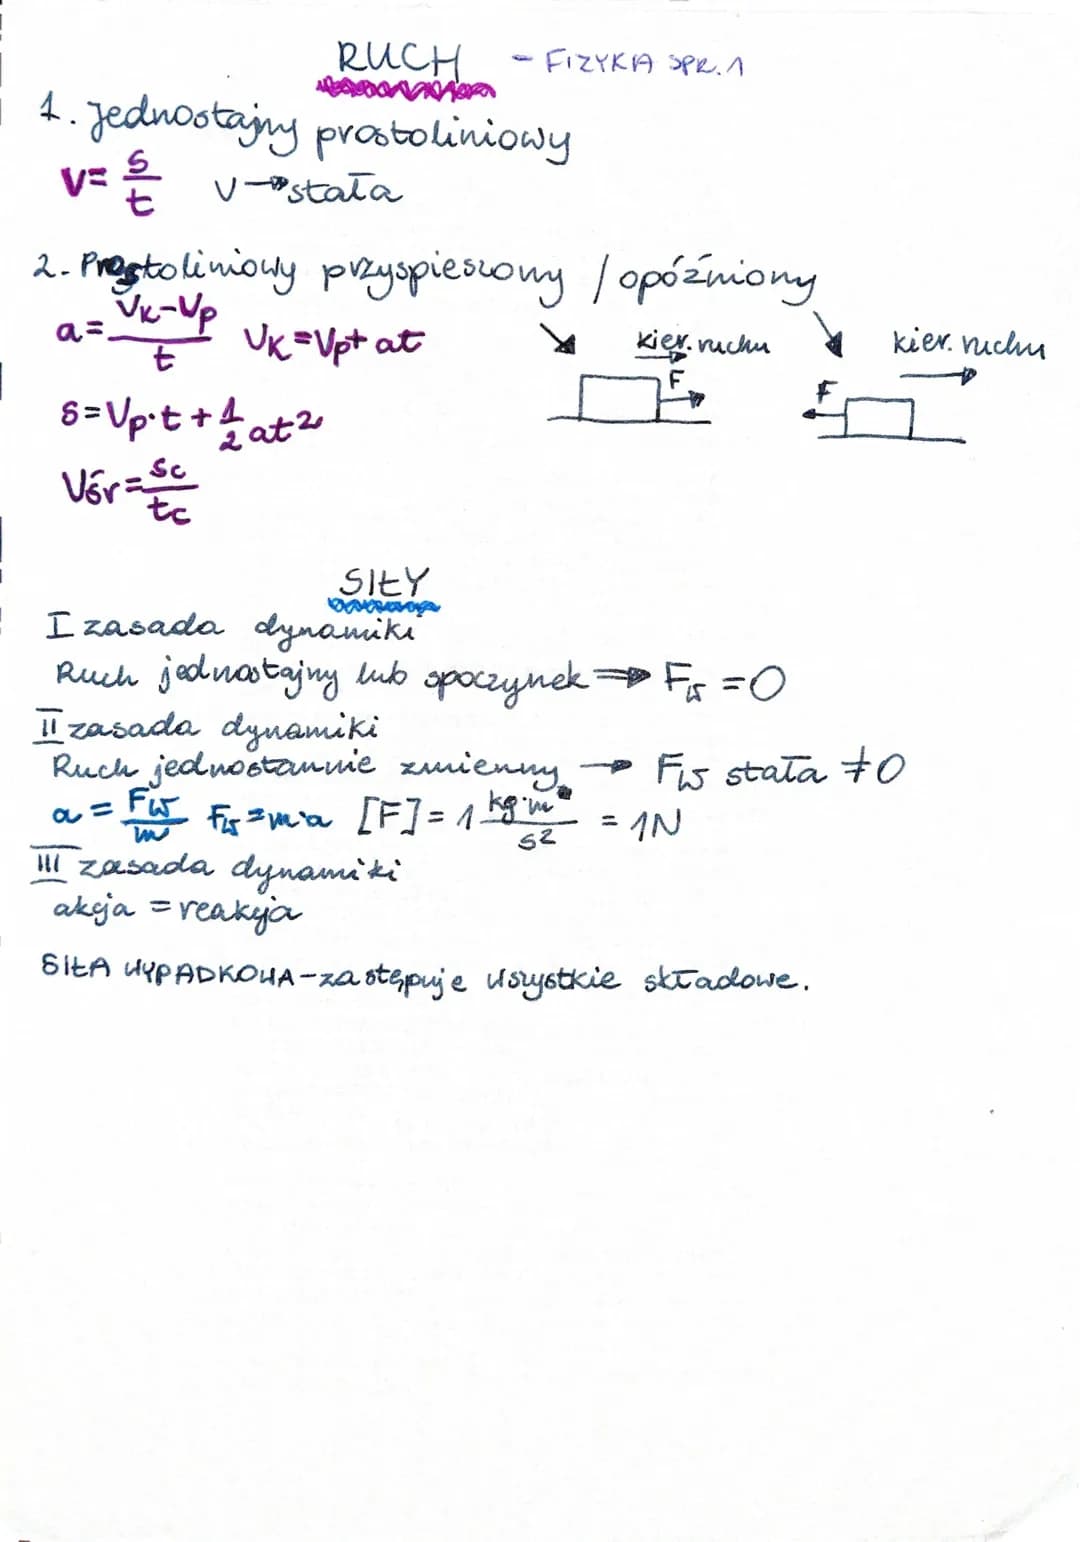 RUCH - FIZYKA SPR. 1
1. Jednostajny prostoliniowy
v = s/t v → stała
2. Prostoliniowy przyspieszony / opóźniony
a = Vk-Vp/t Vk = Vp + at
kier. ruchu
F
kier. ruchu
F
s = Vp·t + 1/2 at²
Vśr = sc/tc
SIŁY
I zasada dynamiki
Ruch jednostajny lub spoczynek ⇒ Fw = 0
II zasada dynamiki
Ruch jednostannie zmienny → Fw stała ≠ 0
a = Fw/m Fw = m·a [F] = 1 kg·m/s² = 1N
III zasada dynamiki
akcja = reakcja
SIŁA WYPADKOWA - zastępuje wszystkie składowe.